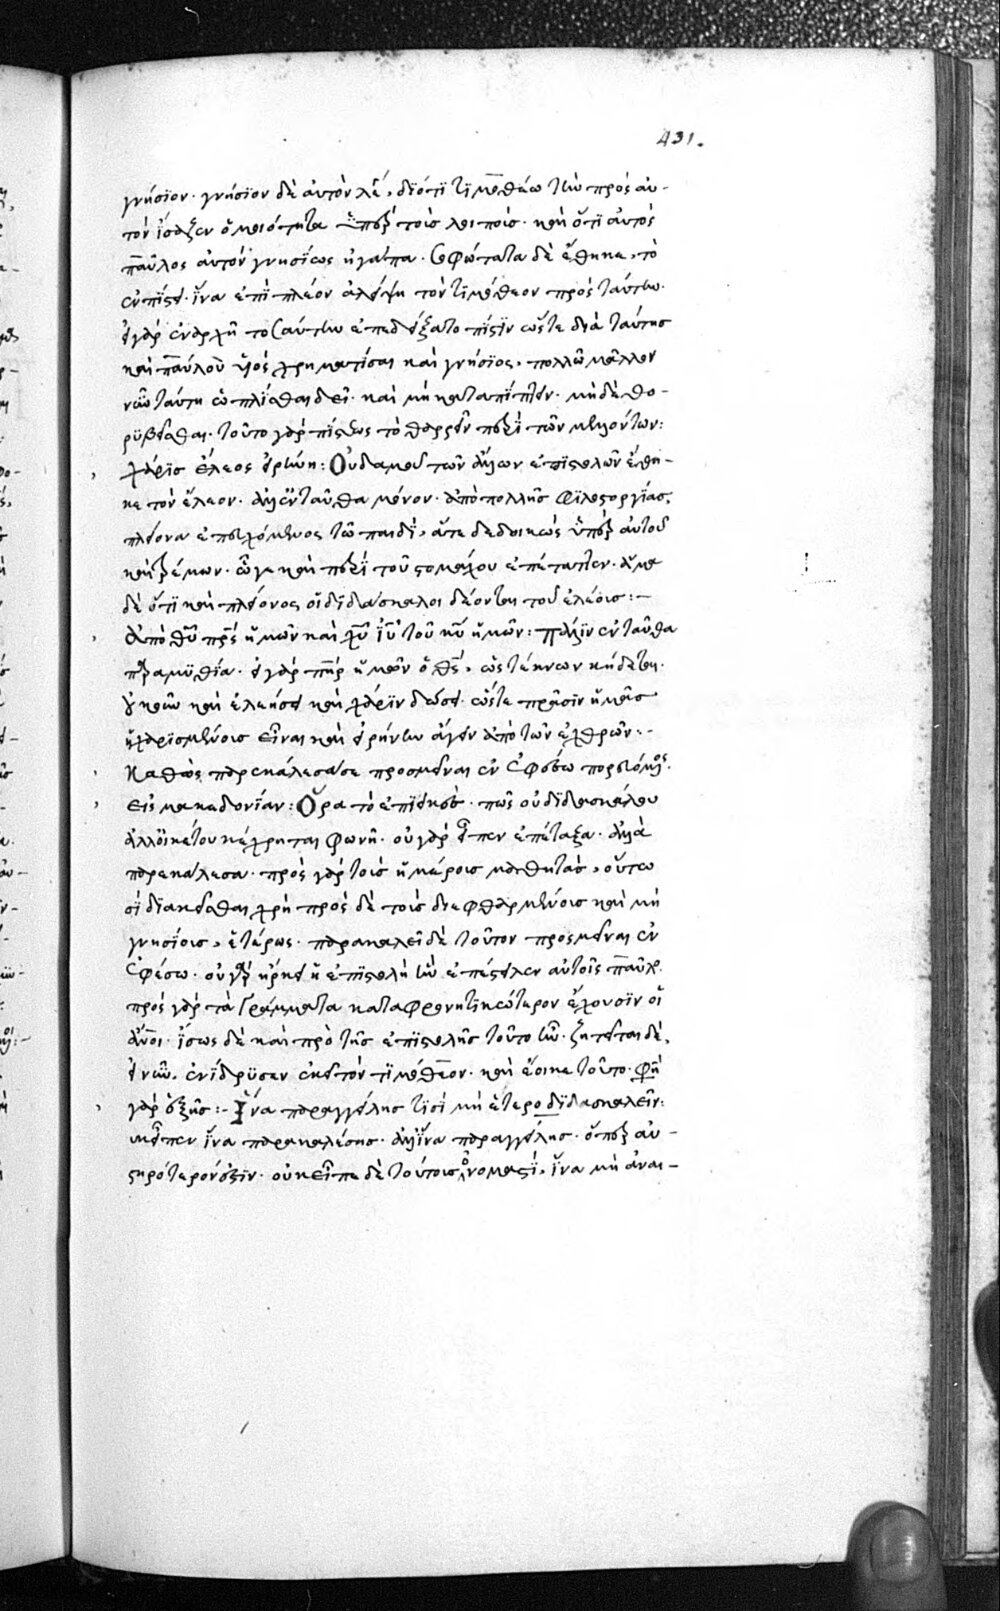 431.
γνήσϊον· γνήσϊον δὲ αὐτὸν λέγει, διότι τιμόθεω τὴν πρὸς αὐ-
τὸν ἔσωζεν ὁμοιότητα ὑπὲρ τοὺς λοιποὺς· καὶ ὅτι αὐτὸς
παῦλος αὐτὸν γνησίως ἠγάπα· σοφώτατα δὲ ἔθηκε, τὸ
ἐν πίστει· ἵνα ἐπὶ πλέον ἀλείψῃ τὸν τιμόθεον πρὸς ταύτην·
εἰ γὰρ ἐν ἀρχῇ τοσαύτην ἐπεδείξατο πίστιν ὥστε διὰ ταύτης
καὶ παύλου υἱὸς χρηματίσαι καὶ γνήσϊος, πολλῶ μᾶλλον
νῦν ταύτη ὁπλίζεσθαι δεῖ· καὶ μὴ καταπίπτειν· μηδὲ θο-
ρυβεῖσθαι· τοῦτο γὰρ πίστεως τὸ θαρρεῖν περὶ τῶν μελλόντων:
χάρις ἔλεος εἰρήνη: Οὐδαμοῦ τῶν ἄλλων ἐπιστολῶν ἔθη-
κε τὸν ἔλεον· ἀλλ' ἐνταῦθα μόνον· ἀπὸ πολλῆς φιλοστοργίας,
πλείονα ἐπευχόμενος τῶ παιδὶ, ἅτε δεδοικὼς ὑπὲρ αὐτοῦ
καὶ τρέμων· ὧ γε καὶ περὶ τοῦ στομάχου ἐπέταττεν· ἅμα
δὲ ὅτι καὶ πλείονος οἱ διδάσκαλοι δέονται τοῦ ἐλέους:-
Ἀπὸ θῦ πρς ἡμῶν καὶ χῦ ἰῦ τοῦ κῦ ἡμῶν: Πάλιν ἐνταῦθα
παραμυθία· εἰ γὰρ πηρ ἡμῶν ὁ θς, ὡς τέκνων κήδεται·
ἡμῶν καὶ ἐλεήσει καὶ χάριν δώσει ὥστε πᾶσιν ἡμᾶς
κεχαρισμένους εἶναι καὶ εἰρήνην ἄγειν ἀπὸ τῶν ἐχθρῶν:-
Καθὼς παρεκάλεσά σε προσμεῖναι ἐν ἐφέσω πορευόμενος
εἰς μακεδονίαν: Ὅρα τὸ ἐπιεικὲς· πῶς οὐ διδασκάλου
ἀλλ' οἰκέτου κέχρηται φωνῇ· οὐ γὰρ εἶπεν ἐπέταξα· ἀλλὰ
παρεκάλεσα· πρὸς γὰρ τοὺς ἡμέρους μαθητὰς, οὕτω
διακεῖσθαι χρὴ πρὸς δὲ τοὺς διεφθαρμένους καὶ μὴ
γνησίους, ἑτέρως· παρακαλεῖ δὲ τοῦτον προσμεῖναι ἐν
ἐφέσω· οὐ γὰρ ἤρκει ἡ ἐπιστολὴ ἣν ἐπέστειλεν αὐτοῖς παῦλος·
πρὸς γὰρ τὰ γράμματα καταφρονητικώτερον ἔχουσιν οἱ
ἄνοι· ἴσως δὲ καὶ πρὸ τῆς ἐπιστολῆς τοῦτο ἦν· ζητεῖται δὲ,
εἰ νῦν ἐνίδρυσεν ἐκεῖ τὸν τιμόθεον· καὶ ἔοικε τοῦτο· φησὶ
γὰρ ἑξῆς:- Ἵνα παραγγείλης τισὶ μὴ ἑτεροδιδασκαλεῖν:
οὐκ εἶπεν ἵνα παρακαλέσης· ἀλλ' ἵνα παραγγείλης· ὅπερ αὐ-
στηρότερόν ἐστιν· οὐκ εἶπε δὲ τούτους ὀνομαστί, ἵνα μὴ ἀναι-